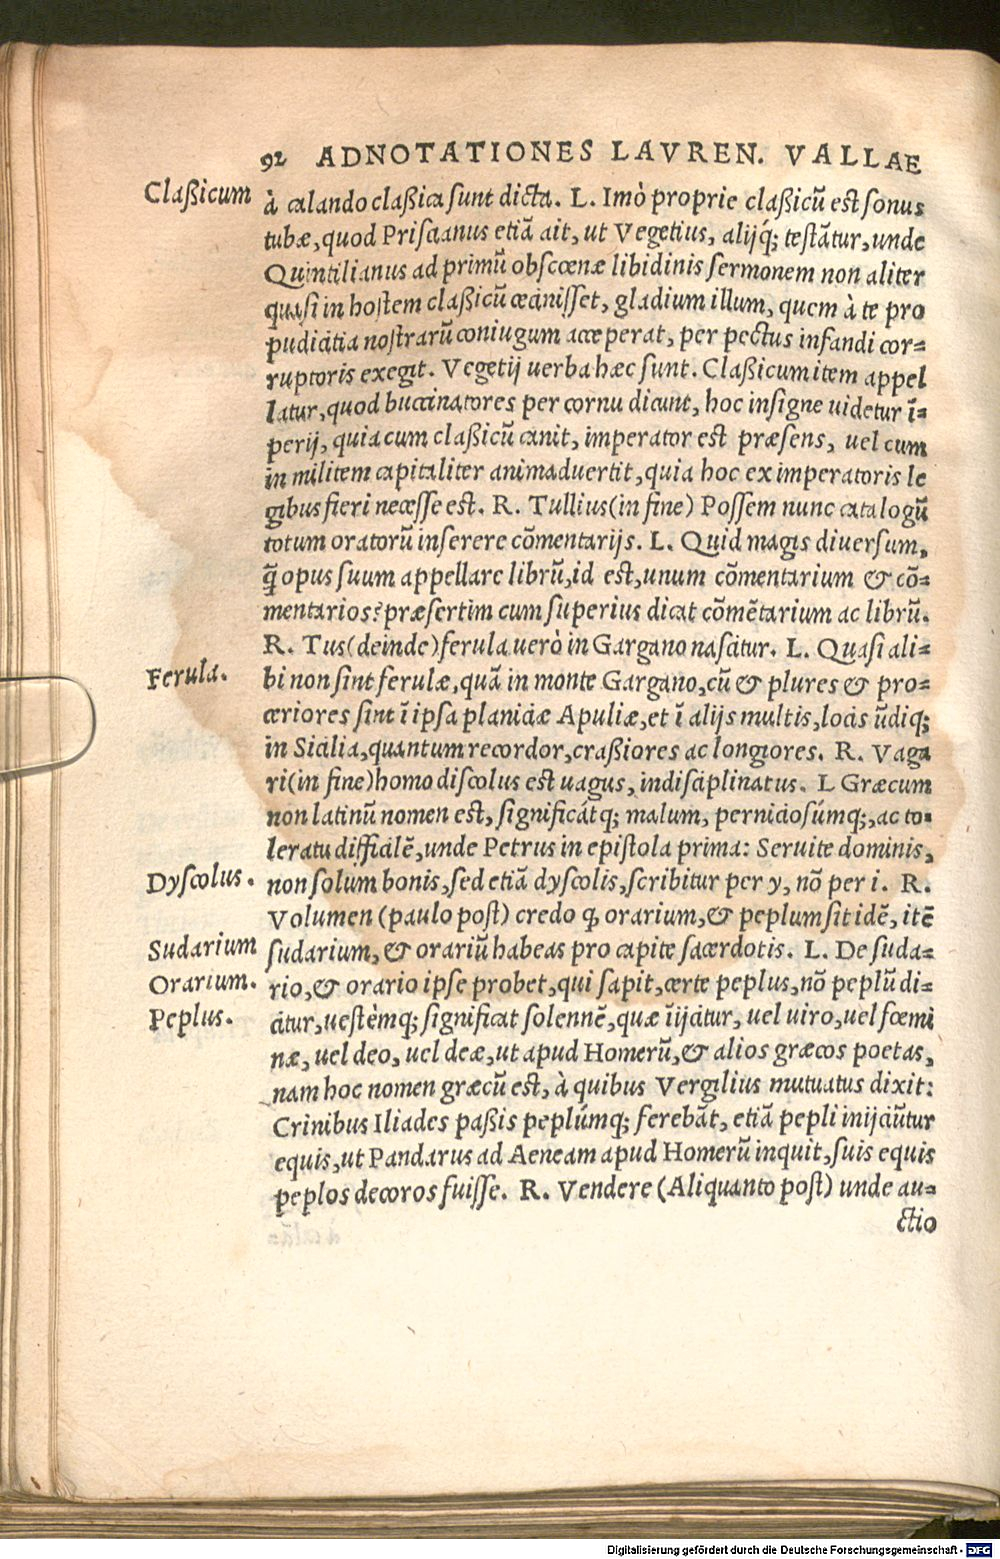 92 ADNOTATIONES LAVREN. VALLAE
Claßicum
à calando claßica sunt dicta. L. Imò proprie claßicũ est sonus
tubæ, quod Priscianus etiã ait, ut Vegetius, alijq́; testãtur, unde
Quintilianus ad primũ obscœnæ libidinis sermonem non aliter
quasi in hostem claßicũ cecinisset, gladium illum, quem à te pro
pudicitia nostrarũ coniugum acceperat, per pectus infandi cor=
ruptoris exegit. Vegetij uerba hæc sunt. Claßicum item appel
latur, quod buccinatores per cornu dicunt, hoc insigne uidetur ĩ=
perij, quia cum claßicũ canit, imperator est præsens, uel cum
in militem capitaliter animaduertit, quia hoc ex imperatoris le
gibus fieri necesse est. R. Tullius (in fine) Possem nunc catalogũ
totum oratorũ inserere cõmentarijs. L. Quid magis diuersum,
q̃ opus suum appellare librũ, id est, unum cõmentarium & cõ=
mentarios? præsertim cum superius dicat cõmẽtarium ac librũ.
R. Tus (deinde) ferula uerò in Gargano nascitur. L. Quasi ali=
Ferula.
bi non sint ferulæ, quã in monte Gargano, cũ & plures & pro=
ceriores sint ĩ ipsa planicie Apuliæ, et ĩ alijs multis, locis ũdiq;
in Sicilia, quantum recordor, craßiores ac longiores. R. Vaga
ri (in fine) homo discolus est uagus, indisciplinatus. L Græcum
non latinũ nomen est, significátq; malum, perniciosúmq;, ac to=
leratu difficilẽ, unde Petrus in epistola prima: Seruite dominis,
Dyscolus.
non solum bonis, sed etiã dyscolis, scribitur per y, nõ per i. R.
Volumen (paulo post) credo q̃ orarium, & peplum sit idẽ, itẽ
Sudarium
sudarium, & orariũ habeas pro capite sacerdotis. L. De suda=
Orarium.
rio, & orario ipse probet, qui sapit, certe peplus, nõ peplũ di=
Peplus.
citur, uestèmq; significat solennẽ, quæ ĩijcitur, uel uiro, uel fœmi
næ, uel deo, uel deæ, ut apud Homerũ, & alios græcos poetas,
nam hoc nomen græcũ est, à quibus Vergilius mutuatus dixit:
Crinibus Iliades paßis peplúmq; ferebãt, etiã pepli inijciũtur
equis, ut Pandarus ad Aeneam apud Homerũ inquit, suis equis
peplos decoros fuisse. R. Vendere (Aliquanto post) unde au=
ctio
Digitalisierung gefördert durch die Deutsche Forschungsgemeinschaft - DFG